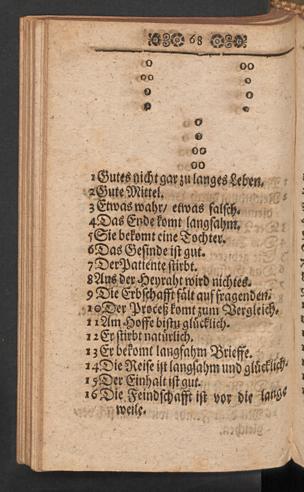 68
1 Gutes nicht gar zu langes Leben.
2 Gute Mittel.
3 Etwas wahr/ etwas falsch.
4 Das Ende komt langsahm.
5 Sie bekomt eine Tochter.
6 Das Gesinde ist gut.
7 Der Patiente stirbt.
8 Aus der Heyraht wird nichtes.
9 Die Erbschafft fält auf fragenden.
10 Der Proceß komt zum Vergleich.
11 Am Hoffe bistu glücklich.
12 Er stirbt natürlich.
13 Er bekomt langsahm Brieffe.
14 Die Reise ist langsahm und glücklich.
15 Der Einhalt ist gut.
16 Die Feindschafft ist vor die lange
weile.